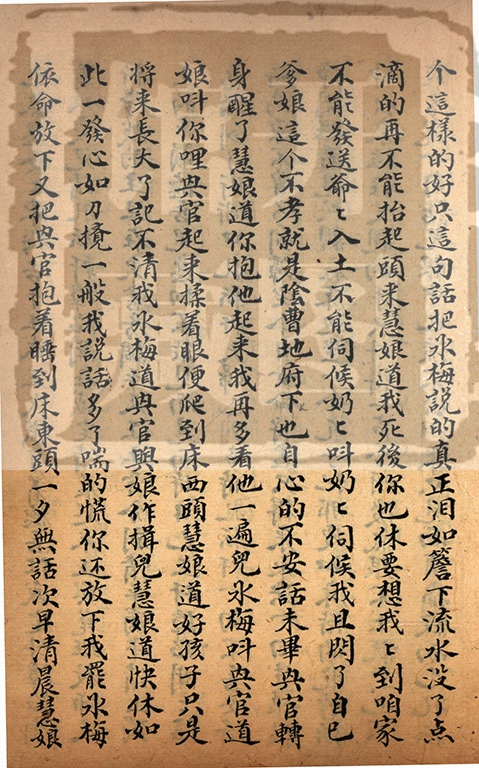 个這樣的好只這句話把氷梅說的真正泪如簷下流水没了点
滴的再不能抬起頭来慧娘道我死後你也休要想我〻到咱家
不能發送爺〻入土不能伺候奶〻呌奶〻伺候我且閃了自己
爹娘這个不孝就是陰曹地府下也自心的不安話未畢興官轉
身醒了慧娘道你抱他起来我再多看他一遍兒氷梅呌興官道
娘呌你哩興官起来揉着眼便爬到床西頭慧娘道好孩子只是
将来長大了記不清我氷梅道興官與娘作揖兒慧娘道快休如
此一發心如刀攪一般我説話多了喘的慌你还放下我罷氷梅
依命放下又把興官抱着睡到床東頭一夕無話次早清晨慧娘